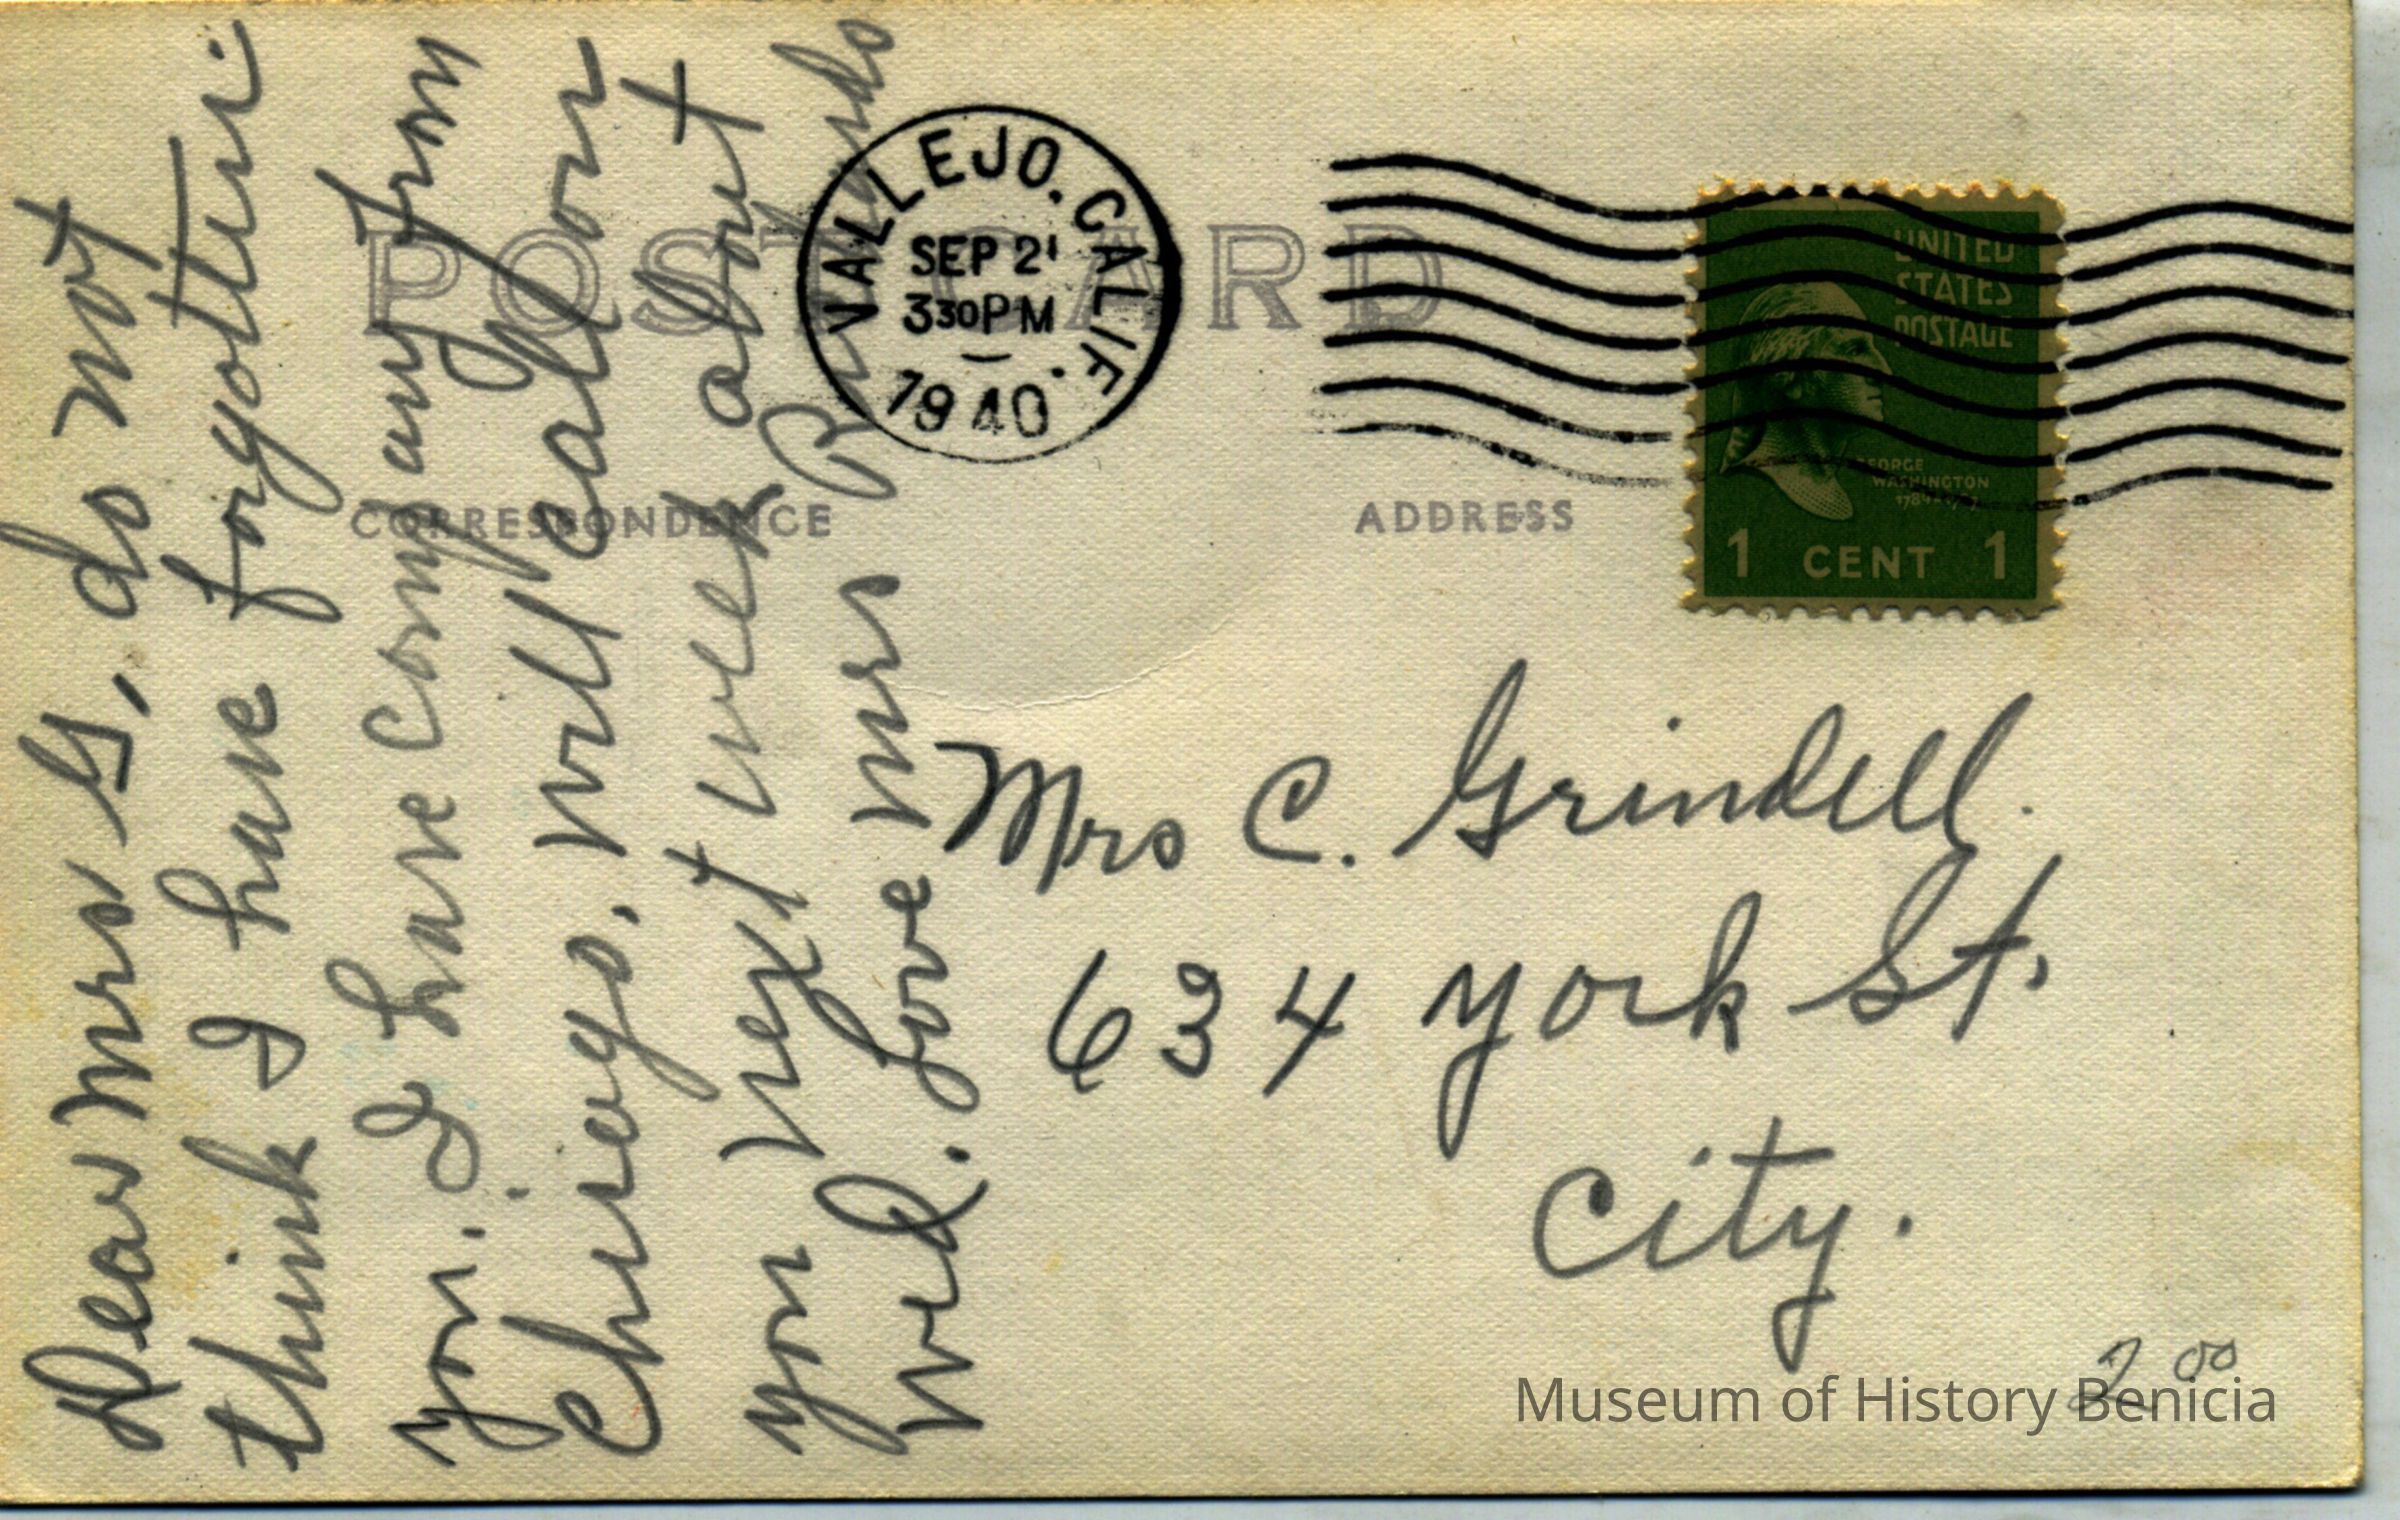 POST CARD
CORRESPONDENCE
ADDRESS
VALLEJO. CALIF.
SEP 21
330PM
1940
UNITED
STATES
POSTAGE
GEORGE
WASHINGTON
1 CENT 1
Dear Mrs G, do not
think I have forgotten
you. I have company from
Chicago, will call on
you next week about
Wed. Love Mrs
Mrs C. Grindell.
634 York St.
City.
2 00
Museum of History Benicia